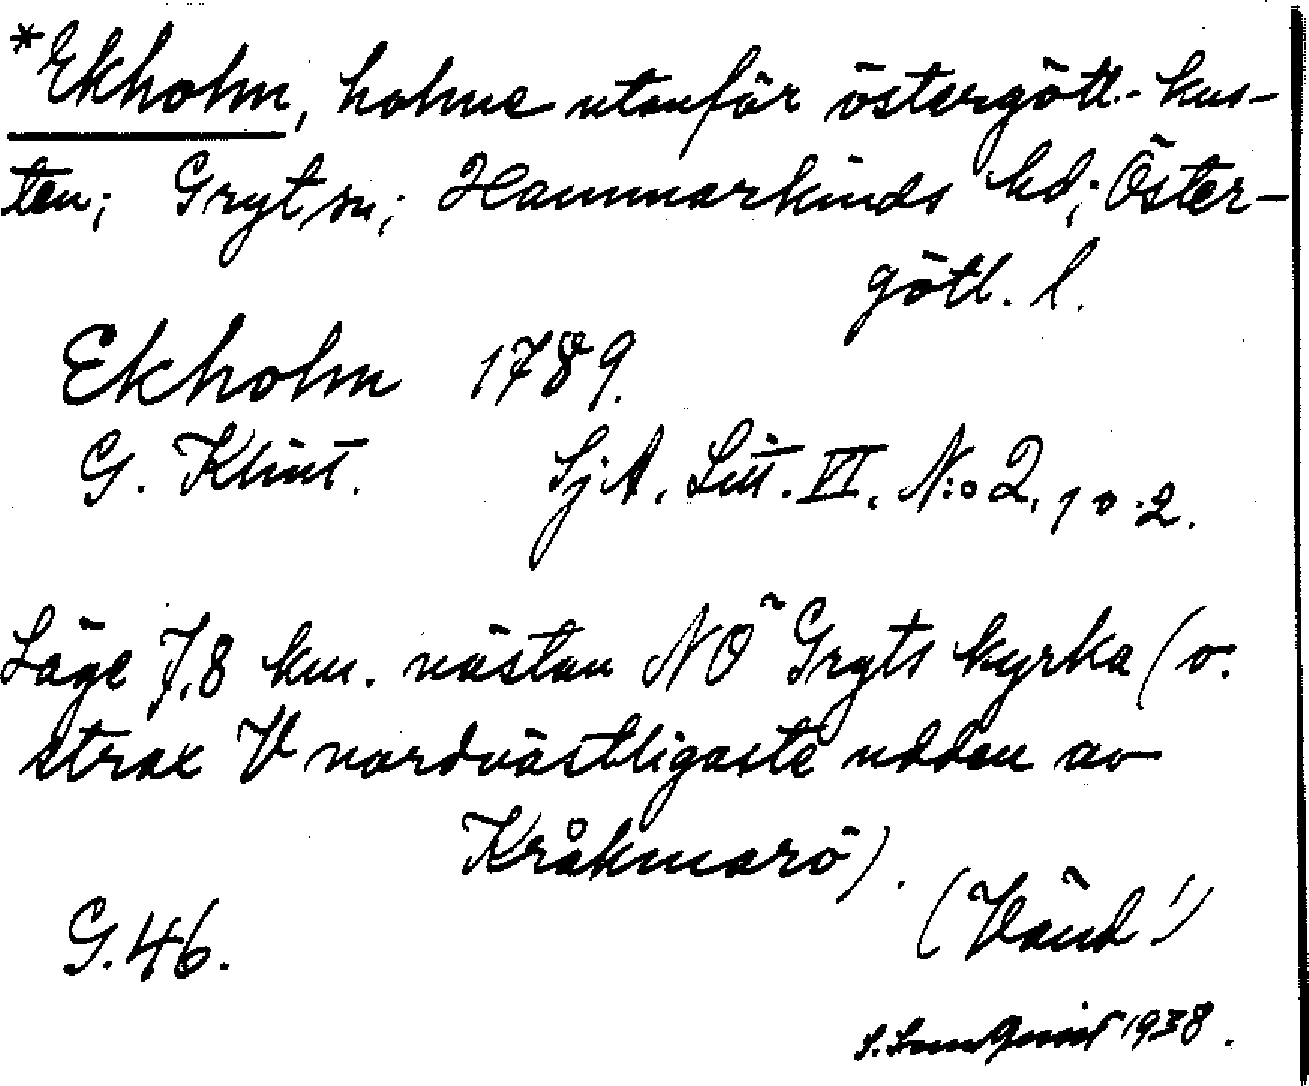 *Ekholm, holme utanför östergötl. kus-
ten; Gryt sn; Hammarkinds hd; Öster-
götl. l.
Ekholm 1789.
G. Klint. SjA. Litt. VI. N:o 2, 1 o. 2.
Läge 7,8 km. nästan NÖ Gryts kyrka (o.
strax V nordvästligaste udden av
Kråkmarö).
G.46. (Vänd!)
S. 1938.